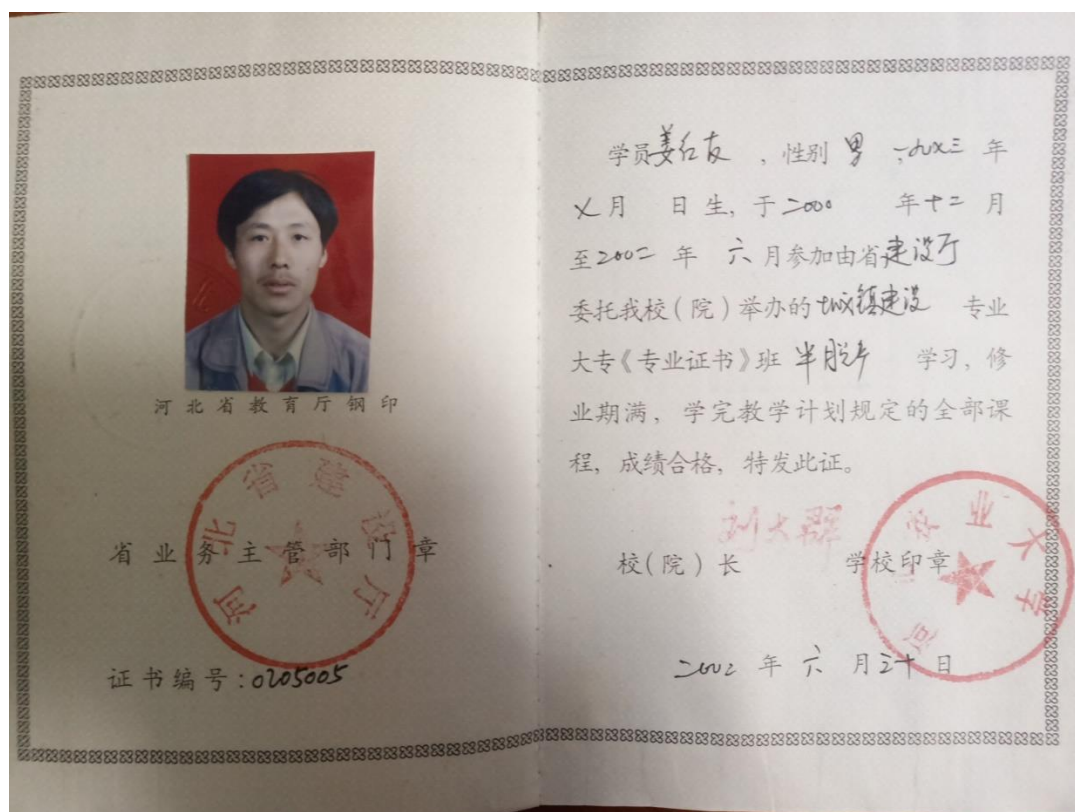 河北省教育厅钢印
河北省建设厅
省业务主管部门章
证书编号:0205005
学员姜红友 ,性别 男 ,一九七三 年
七月 日生,于二000 年十二 月
至2002 年 六 月参加由省建设厅
委托我校(院)举办的城镇建设 专业
大专《专业证书》班 半脱产 学习,修
业期满,学完教学计划规定的全部课
程,成绩合格,特发此证。
刘大群
校(院)长 学校印章
业大学
二00二 年 六 月三十日